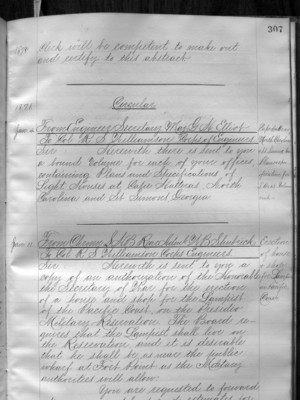 307
Clerk will be competent to make out
and certify to this abstract
1871
Circular
From Engineer Secretary Maj. G. H. Elliot
To Col. R. S. Williamson Corps of Engineers
Sir Herewith there is sent to you
a bound volume for each of your offices
containing Plans and Specifications of
Light Houses at Cape Hatteras North
Carolina and St Simons Georgia
From Chmn L.H.B. W. B. Shubrick
To Col. R. S. Williamson Corps Engineers
Sir Herewith is sent to you a
copy of an authorization of the Honorable
the Secretary of War for the erection
of a house and shop for the Lampist
of the Pacific Coast, on the Presidio
Military Reservation. The Board re-
quires that the Lampist shall live on
the Reservation and it is desirable
that he shall be as near the public
wharf at Fort Point as the Military
authorities will allow.
You are requested to forward
estimates for